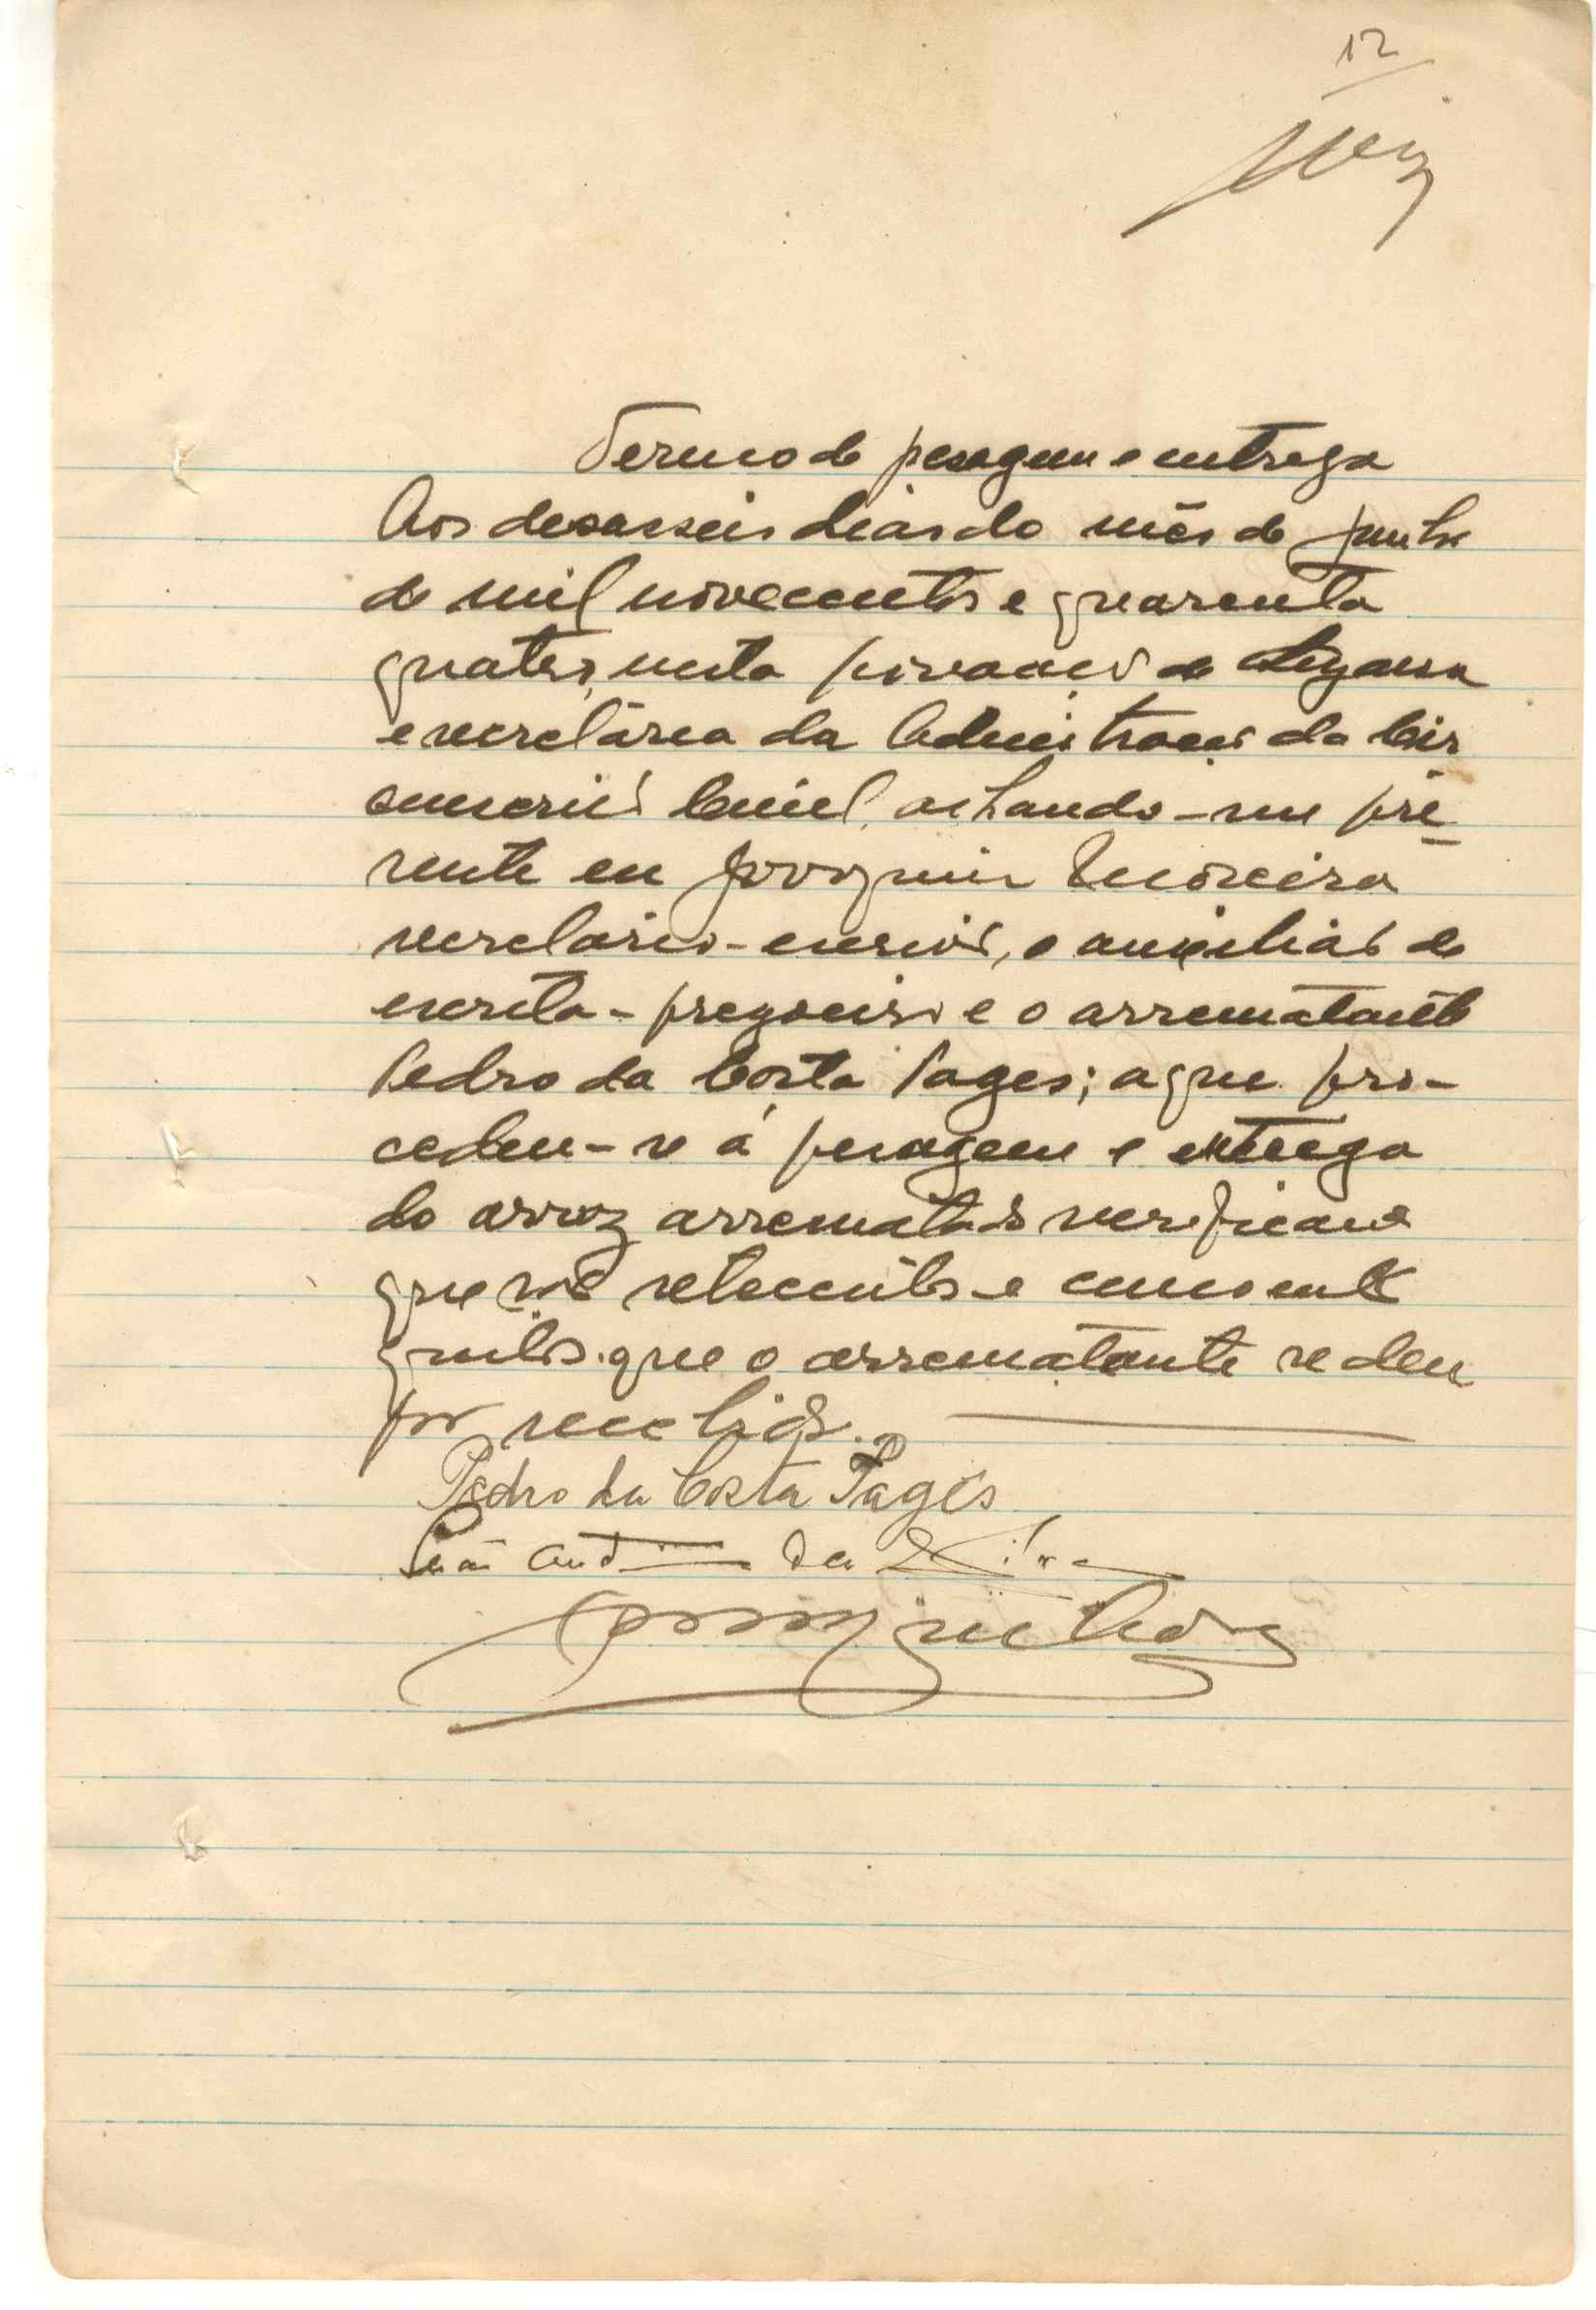 12
Termo de pesagem e entrega
Aos desasseis dias do mês de Junho
de mil novecentos e quarenta
quatro, nesta povoação de
e secretária da Administração da Cir
cunscrição Civil, achando-me pre-
sente eu Joaquim Moreira
secretario-escrivão, o auxiliar de
escrita-pregoeiro e o arrematante
Pedro da Costa Pages; a que pro-
cedeu-se á pesagem e entrega
do arroz arrematado verificando
que são setecentos e cincoenta
quilos que o arrematante se deu
por recebido.
Pedro da Costa Pagés
da Silva